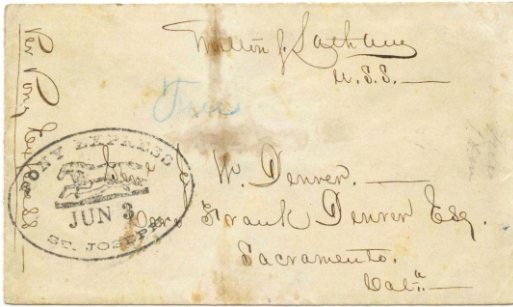 Milton S. Latham
U.S.S.
Free
Per Pony Express
PONY EXPRESS
JUN 3
ST. JOSEPH
W. Denver.
Care Frank Denver Esq.
Sacramento.
Cala.